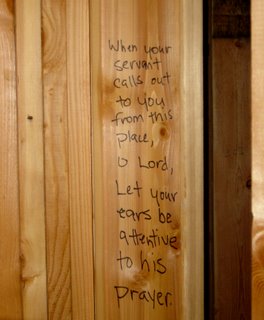 When your
servant
calls out
to you
from this
place,
O Lord,
Let your
ears be
attentive
to his
prayer.